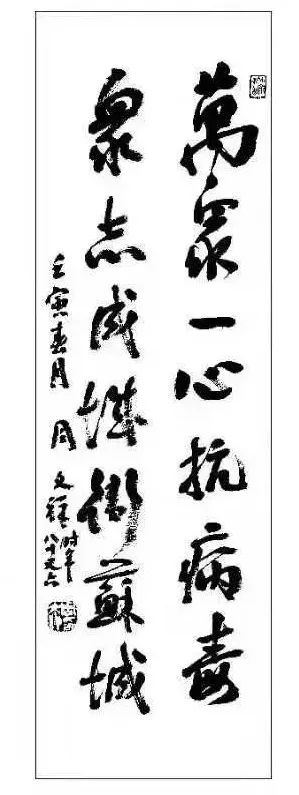 萬眾一心抗病毒
眾志成城衛蘇城
壬寅春月 周文雍 时年八十又六